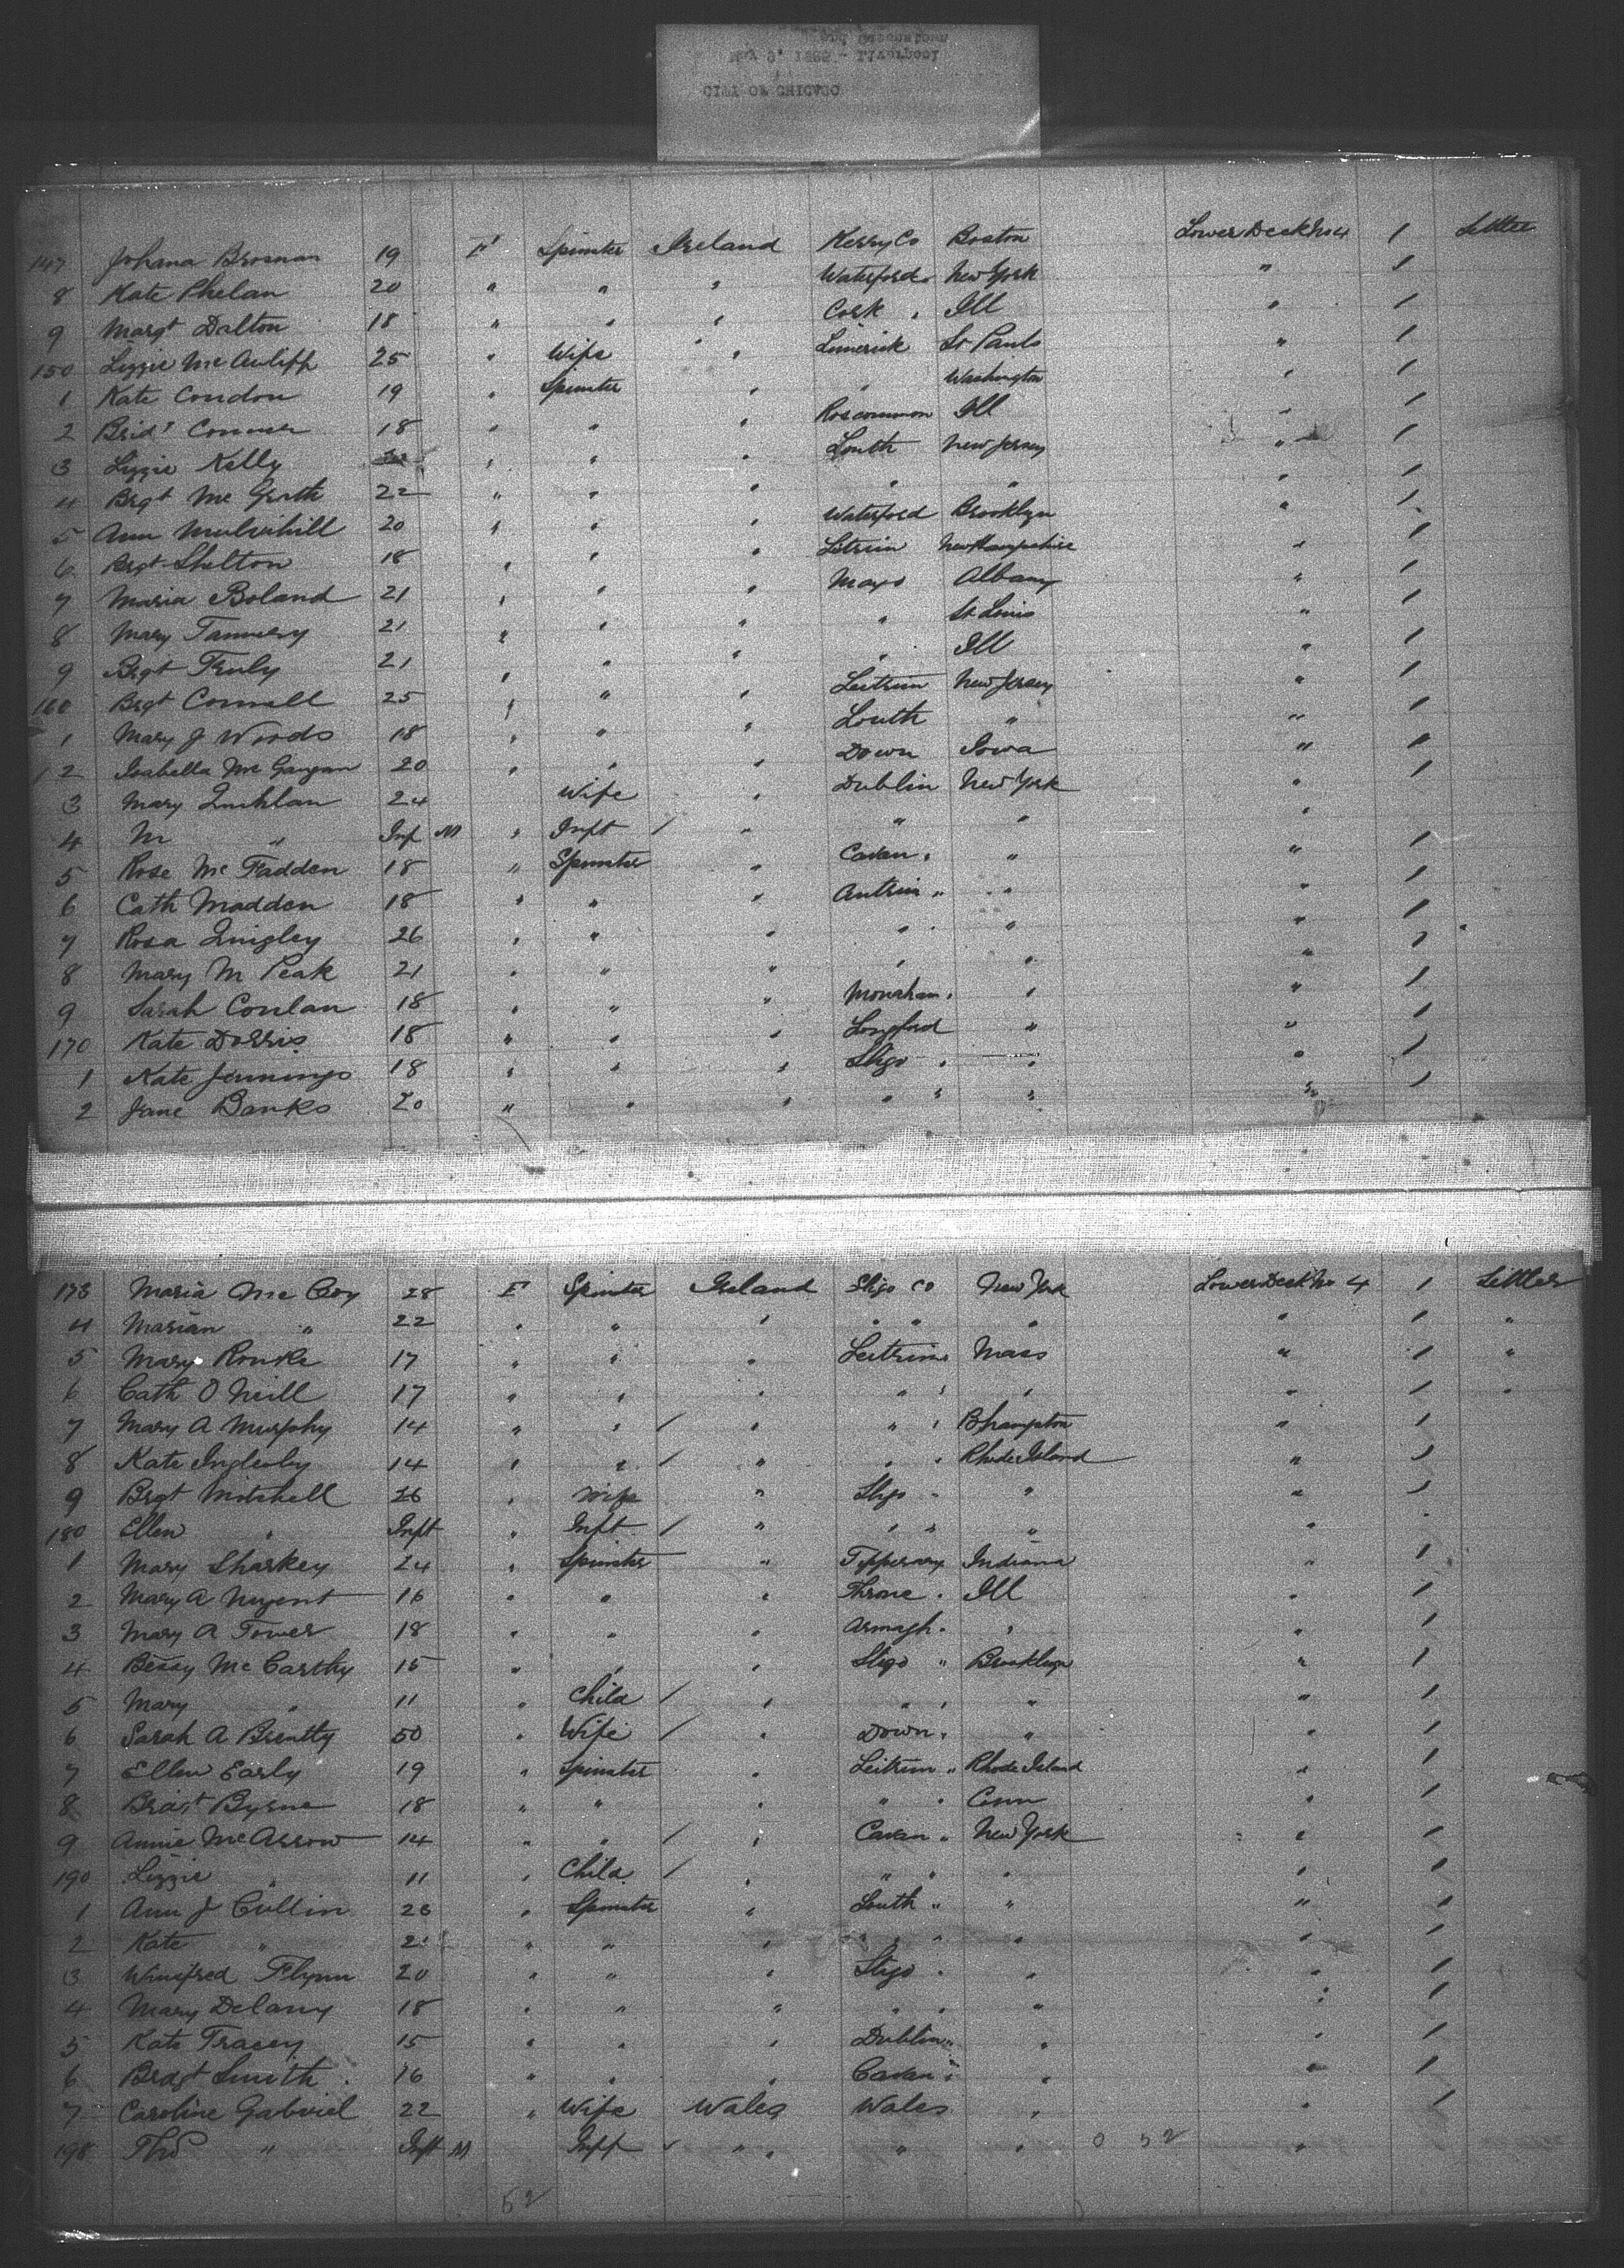 CITY OF CHICAGO
147 Johana Brosnan 19 F Spinster Ireland Kerry Co Boston Lower Deck No 4 1 Settler
8 Kate Phelan 20 " " " Waterford " New York " 1
9 Margt Dalton 18 " " " Cork " Ill " 1
150 Lizzie McAuliff 25 " Wife " Limerick St Pauls " 1
1 Kate Condon 19 " Spinster " " Washington " 1
2 Brid't Connor 18 " " " Roscommon Ill " 1
3 Lizzie Kelly " " " Louth New Jersey " 1
4 Brgt McGrath 22 " " " " " " 1
5 Ann Mulvihill 20 " " " Waterford Brooklyn " 1
6 Brgt Shelton 18 " " " Litrim New Hampshire " 1
7 Maria Boland 21 " " " Mayo Albany " 1
8 Mary Tannery 21 " " " " St Louis " 1
9 Brgt Truly 21 " " " " Ill " 1
160 Brgt Connell 25 " " " Leitrim New Jersey " 1
1 Mary J Woods 18 " " " Louth " " 1
2 Isabella McGargan 20 " " " Down Iowa " 1
3 Mary Quinlan 24 Wife " Dublin New York " 1
4 M " Inf M " Inft / " " " "
5 Rose McFadden 18 " Spinster " Cavan " " " 1
6 Cath Madden 18 " " " Antrim " " " 1
7 Rosa Quigley 26 " " " " " " 1
8 Mary M Peak 21 " " " " " " 1
9 Sarah Conlan 18 " " " Monahan " " " 1
170 Kate Dorris 18 " " " Longford " " 1
1 Kate Jennings 18 " " " Sligo " " " 1
2 Jane Banks 20 " " " " " " " 1
173 Maria McCoy 28 F Spinster Ireland Sligo Co New York Lower Deck No 4 1 Settler
4 Marian " 22 " " " " " " " 1 "
5 Mary Rourke 17 " " " Leitrim " Mass " 1 "
6 Cath O Neill 17 " " " " " " " 1 "
7 Mary A Murphy 14 " " / " " " Bhampton " 1
8 Kate Ingleby 14 " " / " " " Rhode Island " 1
9 Brgt Mitchell 26 " Wife " Sligo " " " 1
180 Ellen " Inft " Inft / " " " " "
1 Mary Sharkey 24 " Spinster " Tipperary Indiana " 1
2 Mary A Nugent 16 " " " Throne " Ill " 1
3 Mary A Tower 18 " " " Armagh " " " 1
4 Bessy McCarthy 15 " " " Sligo " Brooklyn " 1
5 Mary " 11 " Child / " " " " " 1
6 Sarah A Brentty 50 " Wife / " Down " " " 1
7 Ellen Early 19 " Spinster " Leitrim " Rhode Island " 1
8 Bridgt Byrne 18 " " " " " Conn " 1
9 Annie McArrow 14 " " / " Cavan " New York " 1
190 Lizzie " 11 " Child / " " " " " 1
1 Ann J Cullin 26 " Spinster " Louth " " " 1
2 Kate " " " " " " " " 1
3 Winifred Flynn 20 " " " Sligo " " " 1
4 Mary Delany 18 " " " " " " " 1
5 Kate Tracey 15 " " " Dublin " " " 1
6 Bridgt Smith 16 " " " Cavan " " " 1
7 Caroline Gabriel 22 " Wife Wales Wales " " 1
198 Thos " Inft M Inft " " " " 0 52 "
52